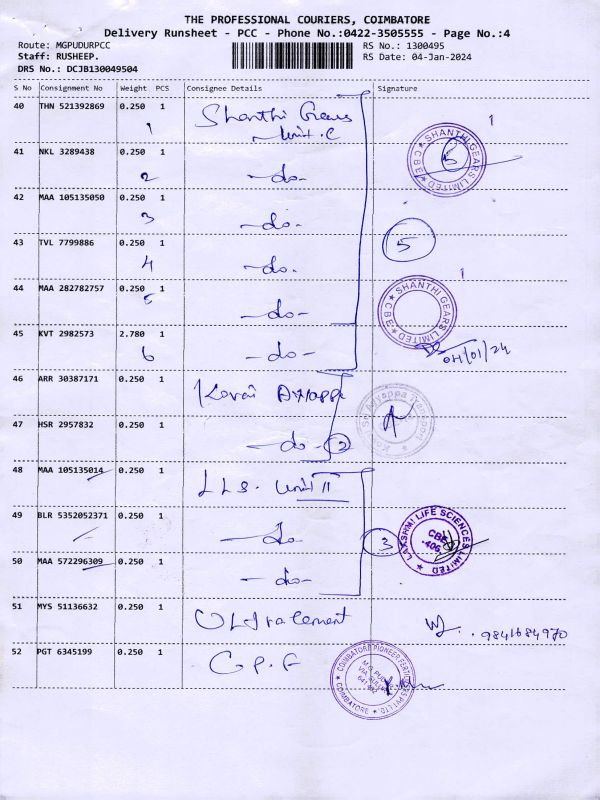 THE PROFESSIONAL COURIERS, COIMBATORE
Delivery Runsheet - PCC - Phone No.:0422-3505555 - Page No.:4
Route: MGPUDURPCC
RS No.: 1300495
Staff: RUSHEEP.
RS Date: 04-Jan-2024
DRS No.: DCJB130049504
S No Consignment No Weight PCS Consignee Details Signature
40 THN 521392869 0.250 1 Shanthi Gears
1 Unit.C
1
SHANTHI GEARS LIMITED CBE 6
41 NKL 3289438 0.250 1
2 -do-
42 MAA 105135050 0.250 1
3 -do-
43 TVL 7799886 0.250 1
4 -do-
5
44 MAA 282782757 0.250 1
5 -do-
1
SHANTHI GEARS LIMITED CBE
45 KVT 2982573 2.780 1
6 -do-
04/01/24
46 ARR 30387171 0.250 1 Kovai
Ayyappa Transport
47 HSR 2957832 0.250 1
-do- 2
48 MAA 105135014 0.250 1 LLS. Unit II
49 BLR 5352052371 0.250 1
-do-
3
LAKSHMI LIFE SCIENCES LIMITED CBE
50 MAA 572296309 0.250 1
-do-
51 MYS 51136632 0.250 1 Ultracement
9841684970
52 PGT 6345199 0.250 1 C.P.F
COIMBATORE PIONEER FERTILIZERS PVT LTD. COIMBATORE